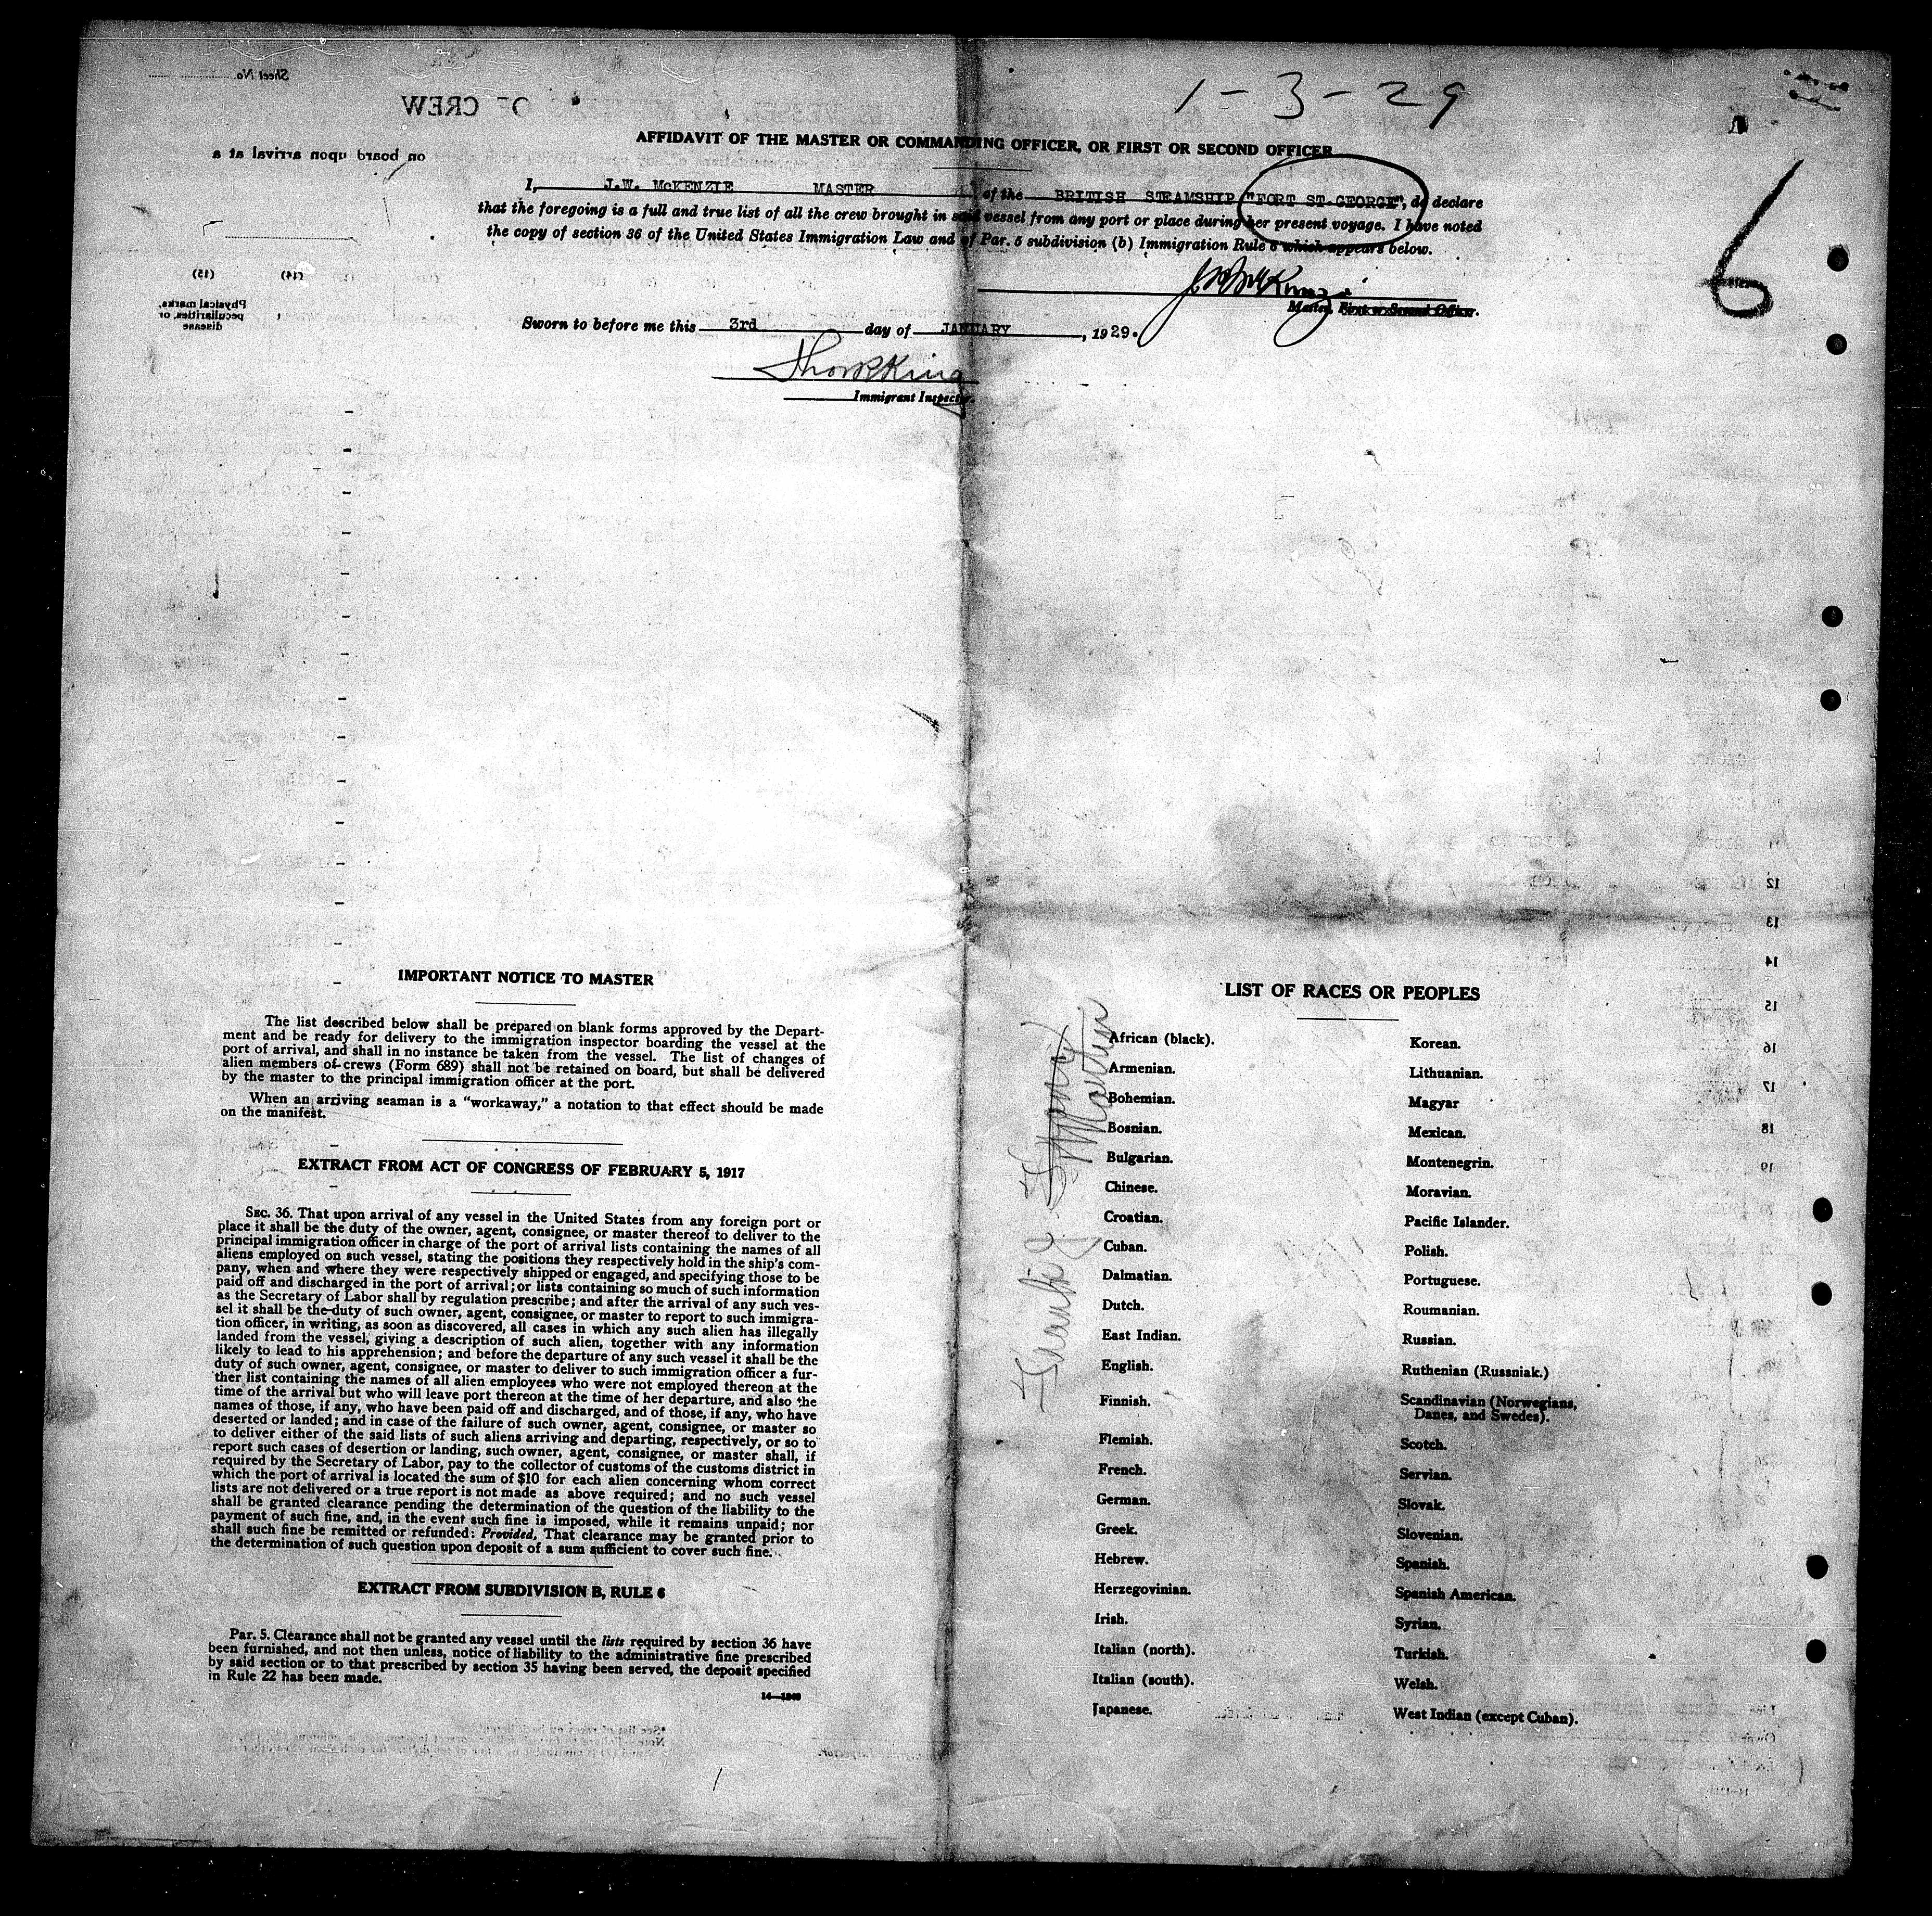 1-3-29
Sheet No.
OF CREW
on board upon arrival at a
AFFIDAVIT OF THE MASTER OR COMMANDING OFFICER, OR FIRST OR SECOND OFFICER
I, J.W. McKENZIE MASTER of the BRITISH STEAMSHIP "FORT ST.GEORGE", do declare
that the foregoing is a full and true list of all the crew brought in said vessel from any port or place during her present voyage. I have noted
the copy of section 36 of the United States Immigration Law and of Par. 5 subdivision (b) Immigration Rule 6 which appears below.
6
J W McKenzie
Master, First or Second Officer.
(15)
(14)
Physical marks,
peculiarities, or
disease
Sworn to before me this 3rd day of JANUARY, 1929.
Immigrant Inspector.
IMPORTANT NOTICE TO MASTER
The list described below shall be prepared on blank forms approved by the Depart-
ment and be ready for delivery to the immigration inspector boarding the vessel at the
port of arrival, and shall in no instance be taken from the vessel. The list of changes of
alien members of crews (Form 689) shall not be retained on board, but shall be delivered
by the master to the principal immigration officer at the port.
When an arriving seaman is a "workaway," a notation to that effect should be made
on the manifest.
EXTRACT FROM ACT OF CONGRESS OF FEBRUARY 5, 1917
SEC. 36. That upon arrival of any vessel in the United States from any foreign port or
place it shall be the duty of the owner, agent, consignee, or master thereof to deliver to the
principal immigration officer in charge of the port of arrival lists containing the names of all
aliens employed on such vessel, stating the positions they respectively hold in the ship's com-
pany, when and where they were respectively shipped or engaged, and specifying those to be
paid off and discharged in the port of arrival; or lists containing so much of such information
as the Secretary of Labor shall by regulation prescribe; and after the arrival of any such ves-
sel it shall be the duty of such owner, agent, consignee, or master to report to such immigra-
tion officer, in writing, as soon as discovered, all cases in which any such alien has illegally
landed from the vessel, giving a description of such alien, together with any information
likely to lead to his apprehension; and before the departure of any such vessel it shall be the
duty of such owner, agent, consignee, or master to deliver to such immigration officer a fur-
ther list containing the names of all alien employees who were not employed thereon at the
time of the arrival but who will leave port thereon at the time of her departure, and also the
names of those, if any, who have been paid off and discharged, and of those, if any, who have
deserted or landed; and in case of the failure of such owner, agent, consignee, or master so
to deliver either of the said lists of such aliens arriving and departing, respectively, or so to
report such cases of desertion or landing, such owner, agent, consignee, or master shall, if
required by the Secretary of Labor, pay to the collector of customs of the customs district in
which the port of arrival is located the sum of $10 for each alien concerning whom correct
lists are not delivered or a true report is not made as above required; and no such vessel
shall be granted clearance pending the determination of the question of the liability to the
payment of such fine, and, in the event such fine is imposed, while it remains unpaid; nor
shall such fine be remitted or refunded: Provided, That clearance may be granted prior to
the determination of such question upon deposit of a sum sufficient to cover such fine.
EXTRACT FROM SUBDIVISION B, RULE 6
Par. 5. Clearance shall not be granted any vessel until the lists required by section 36 have
been furnished, and not then unless, notice of liability to the administrative fine prescribed
by said section or to that prescribed by section 35 having been served, the deposit specified
in Rule 22 has been made.
LIST OF RACES OR PEOPLES
African (black).
Armenian.
Bohemian.
Bosnian.
Bulgarian.
Chinese.
Croatian.
Cuban.
Dalmatian.
Dutch.
East Indian.
English.
Finnish.
Flemish.
French.
German.
Greek.
Hebrew.
Herzegovinian.
Irish.
Italian (north).
Italian (south).
Japanese.
Korean.
Lithuanian.
Magyar
Mexican.
Montenegrin.
Moravian.
Pacific Islander.
Polish.
Portuguese.
Roumanian.
Russian.
Ruthenian (Russniak.)
Scandinavian (Norwegians,
Danes, and Swedes).
Scotch.
Servian.
Slovak.
Slovenian.
Spanish.
Spanish American.
Syrian.
Turkish.
Welsh.
West Indian (except Cuban).
12
13
14
15
16
17
18
19